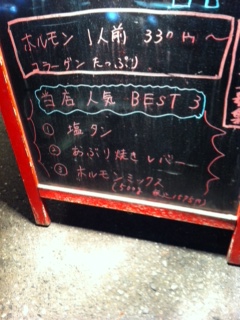 ホルモン 1人前 330円〜
コラーゲン たっぷり
当店人気 BEST 3
① 塩タン
② あぶり焼きレバー
③ ホルモンミックス